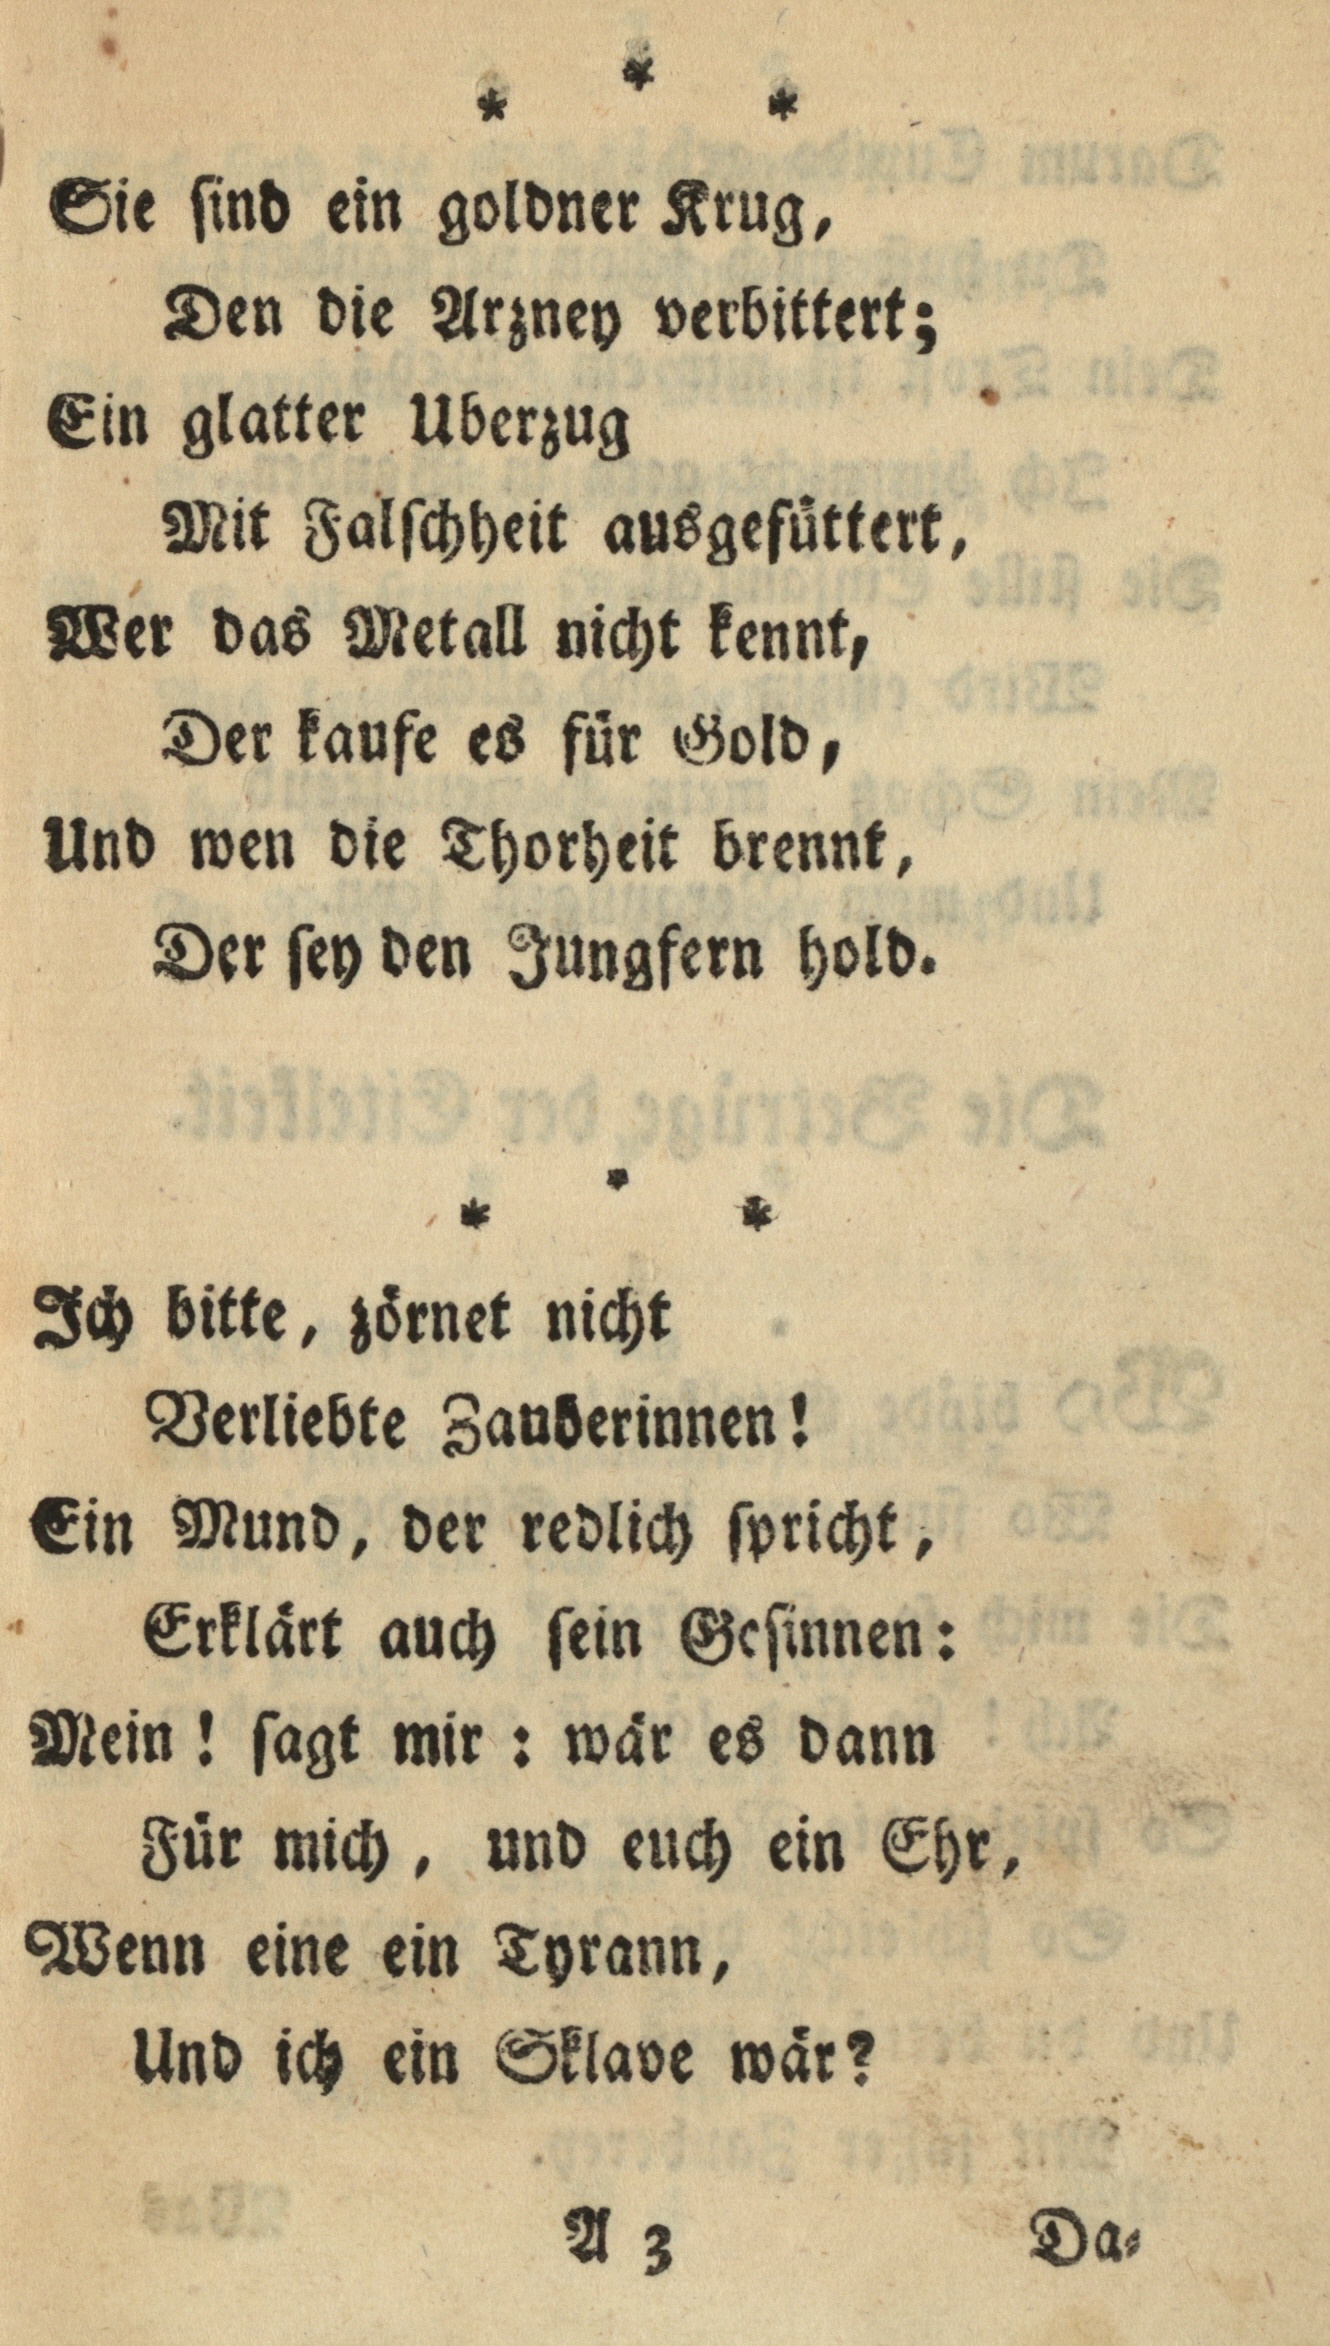 * * *
Sie sind ein goldner Krug,
Den die Arzney verbittert;
Ein glatter Uberzug
Mit Falschheit ausgefüttert,
Wer das Metall nicht kennt,
Der kaufe es für Gold,
Und wen die Thorheit brennt,
Der sey den Jungfern hold.
* * *
Ich bitte, zörnet nicht
Verliebte Zauberinnen!
Ein Mund, der redlich spricht,
Erklärt auch sein Gesinnen:
Mein! sagt mir: wär es dann
Für mich, und euch ein Ehr,
Wenn eine ein Tyrann,
Und ich ein Sklave wär?
A 3 Da-